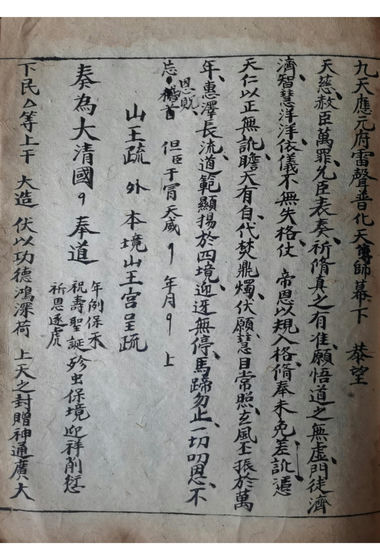 九天應元府雷聲普化天尊師幕下 恭望
天慈赦臣萬罪允臣表奏祈脩真之有准願悟道之無虛門徒濟
濟智慧洋洋依儀不無失格仗 帝恩以規入格脩奉未免差訛憑
天仁以正無訛瞻天有自代焚鼎爥伏願慧目常照玄風丕振於萬
年惠澤長流道範顯揚於四境迎迓無停馬蹄勿止一切叨恩不
恩既
忘 但臣干冒天威 年月 上
山王疏 外本境山王宮呈疏
奏為大清國 奉道
年例保禾
祝壽聖誕殄虫保境迎祥削愆
祈恩逐虎
下民厶等上干 大造 伏以功德鴻深荷 上天之封贈神通廣大